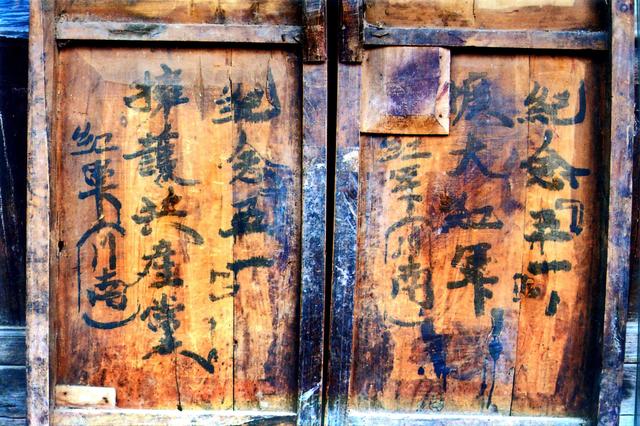 紀念五一
擴大紅軍
紅軍(川南)
紀念五一
擁護共產堂
紅軍(川南)